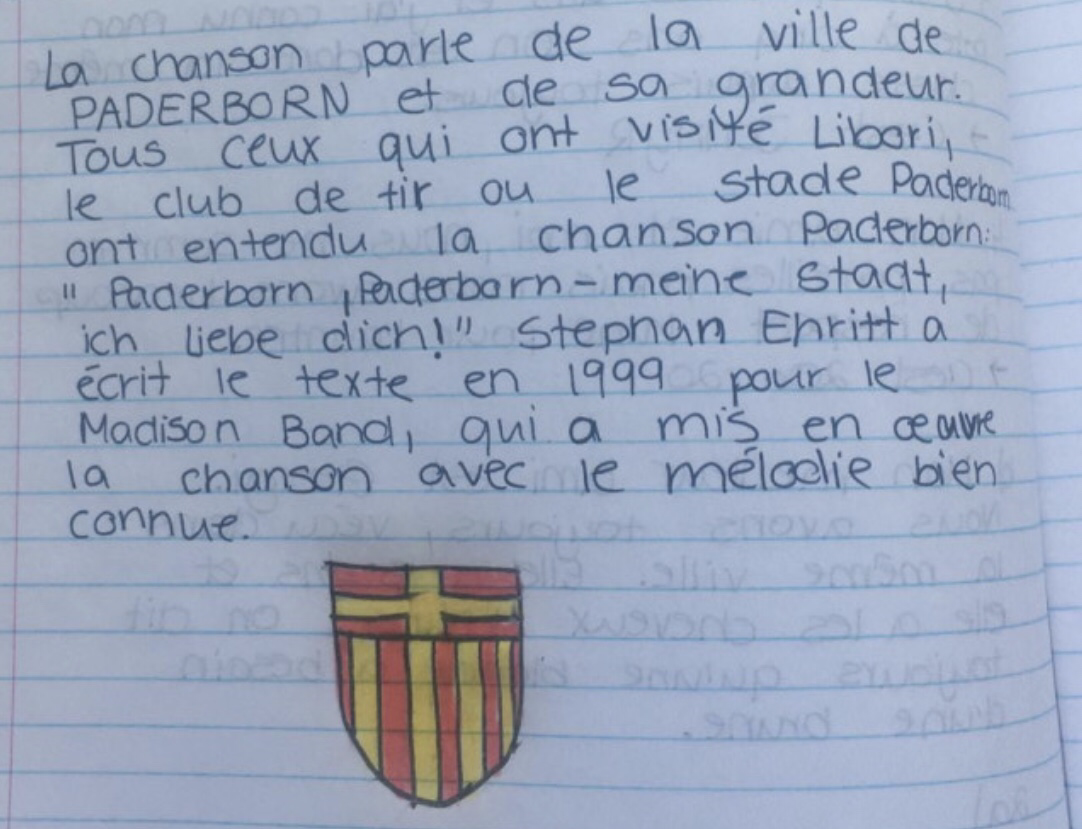 La chanson parle de la ville de
PADERBORN et de sa grandeur.
Tous ceux qui ont visité Libori,
le club de tir ou le stade Paderborn
ont entendu la chanson Paderborn:
"Paderborn, Paderborn - meine Stadt,
ich liebe dich!" Stephan Ehritt a
écrit le texte en 1999 pour le
Madison Band, qui a mis en œuvre
la chanson avec le mélodie bien
connue.